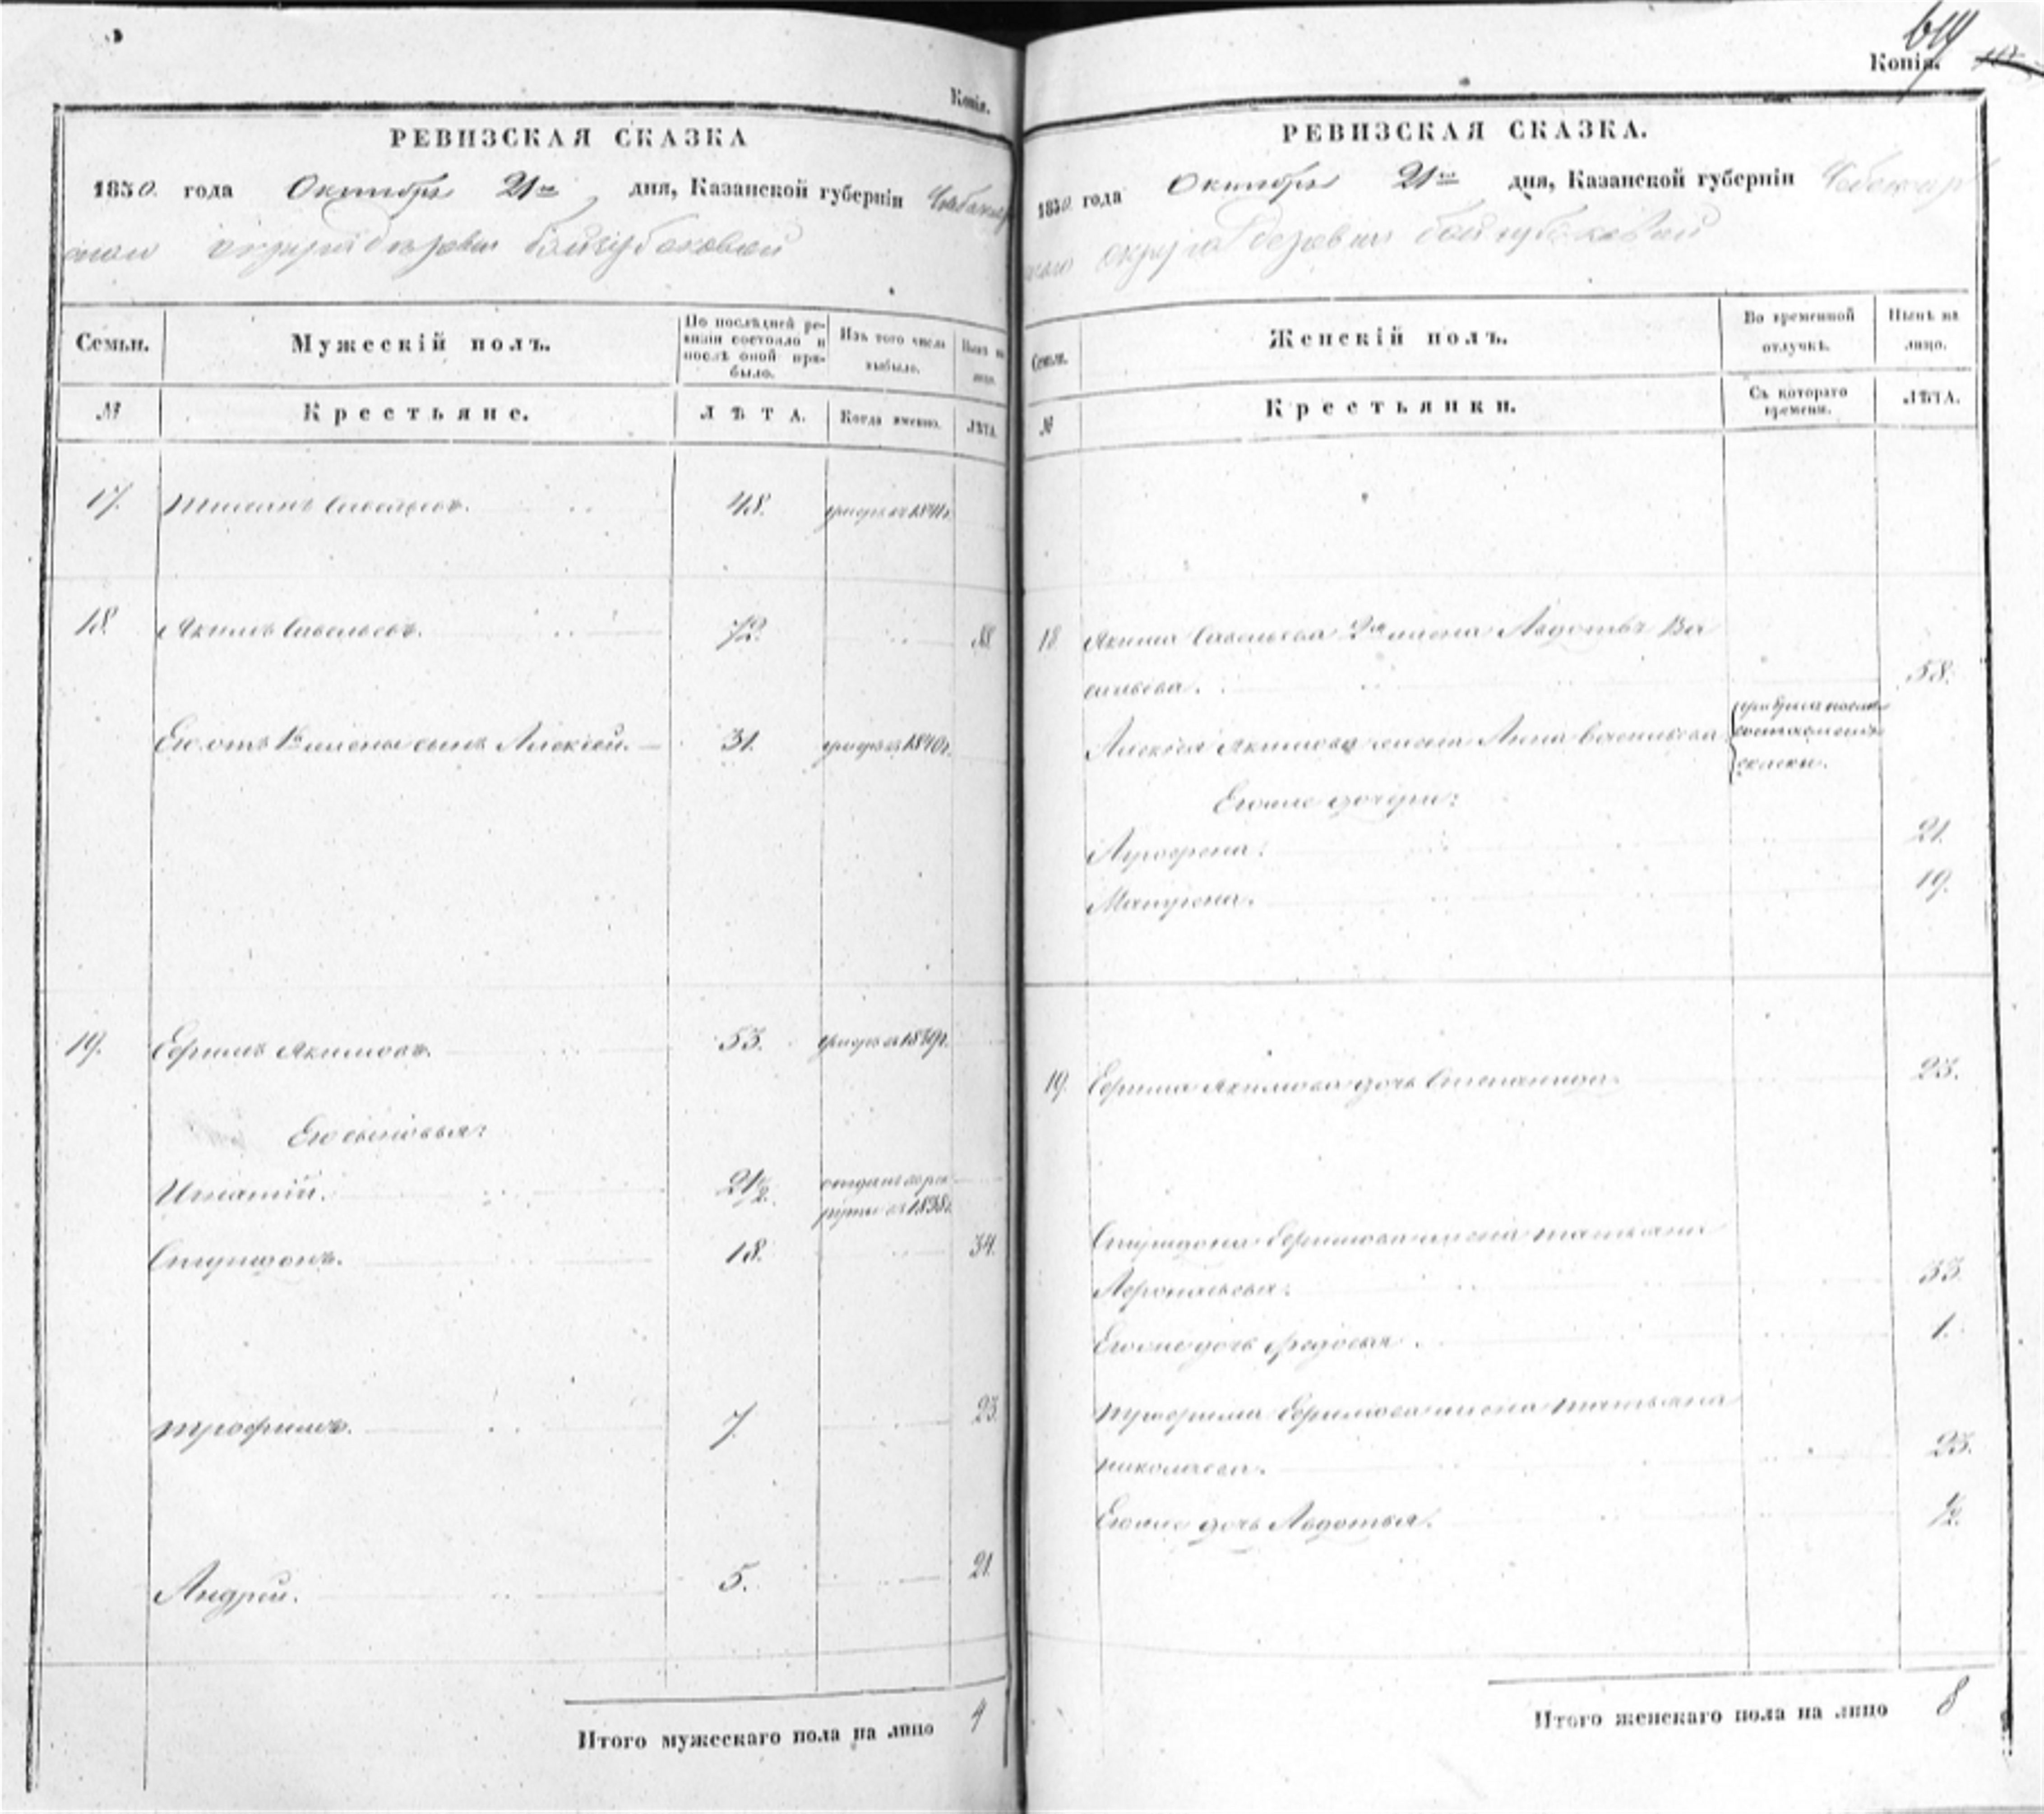 Копія.
РЕВИЗСКАЯ СКАЗКА
1850. года Октября 21го дня, Казанской губерніи Чебоксар
скаго округа деревни
Семьи.
Мужескій полъ.
По послѣдней ре-
визіи состояло и
послѣ оной при-
было.
Изъ того числа
выбыло.
Нынѣ на
лицо.
№
Крестьяне.
ЛѢТА.
Когда именно.
ЛѢТА.
17. Савельевъ. 48. умеръ въ 1841г.
18. Якимъ Савельевъ. 72. 88
Его отъ 1й жены сынъ Алексѣй. 31. умеръ въ 1840г.
19. Ефимъ Якимовъ. 53. умеръ въ 1839г.
Его сыновья:
Игнатій. 21½. отданъ въ рек
руты въ 1838г.
18. 34.
Трофимъ. 7. 23.
Андрей. 5. 21.
Итого мужескаго пола на лицо 4
Копія.
РЕВИЗСКАЯ СКАЗКА.
1850 года Октября 21го дня, Казанской губерніи Чебоксар
скаго округа деревни
Семьи.
Женскій полъ.
Во временной
отлучкѣ.
Нынѣ на
лицо.
№
Крестьянки.
Съ котораго
времени.
ЛѢТА.
18 Якима Савельева 2я жена Авдотья Ва
сильева. 58.
Алексѣя Якимова жена Анна Васильева
сказки.
Его же дочери:
21.
Матрена. 19.
19. Ефима Якимова дочь Степанида. 23.
Ефимова жена Татьяна
33.
Его же дочь Федосья. 1.
Трофима Ефимова жена Татьяна
Николаева. 23.
Его же дочь Авдотья. ½.
Итого женскаго пола на лицо 8